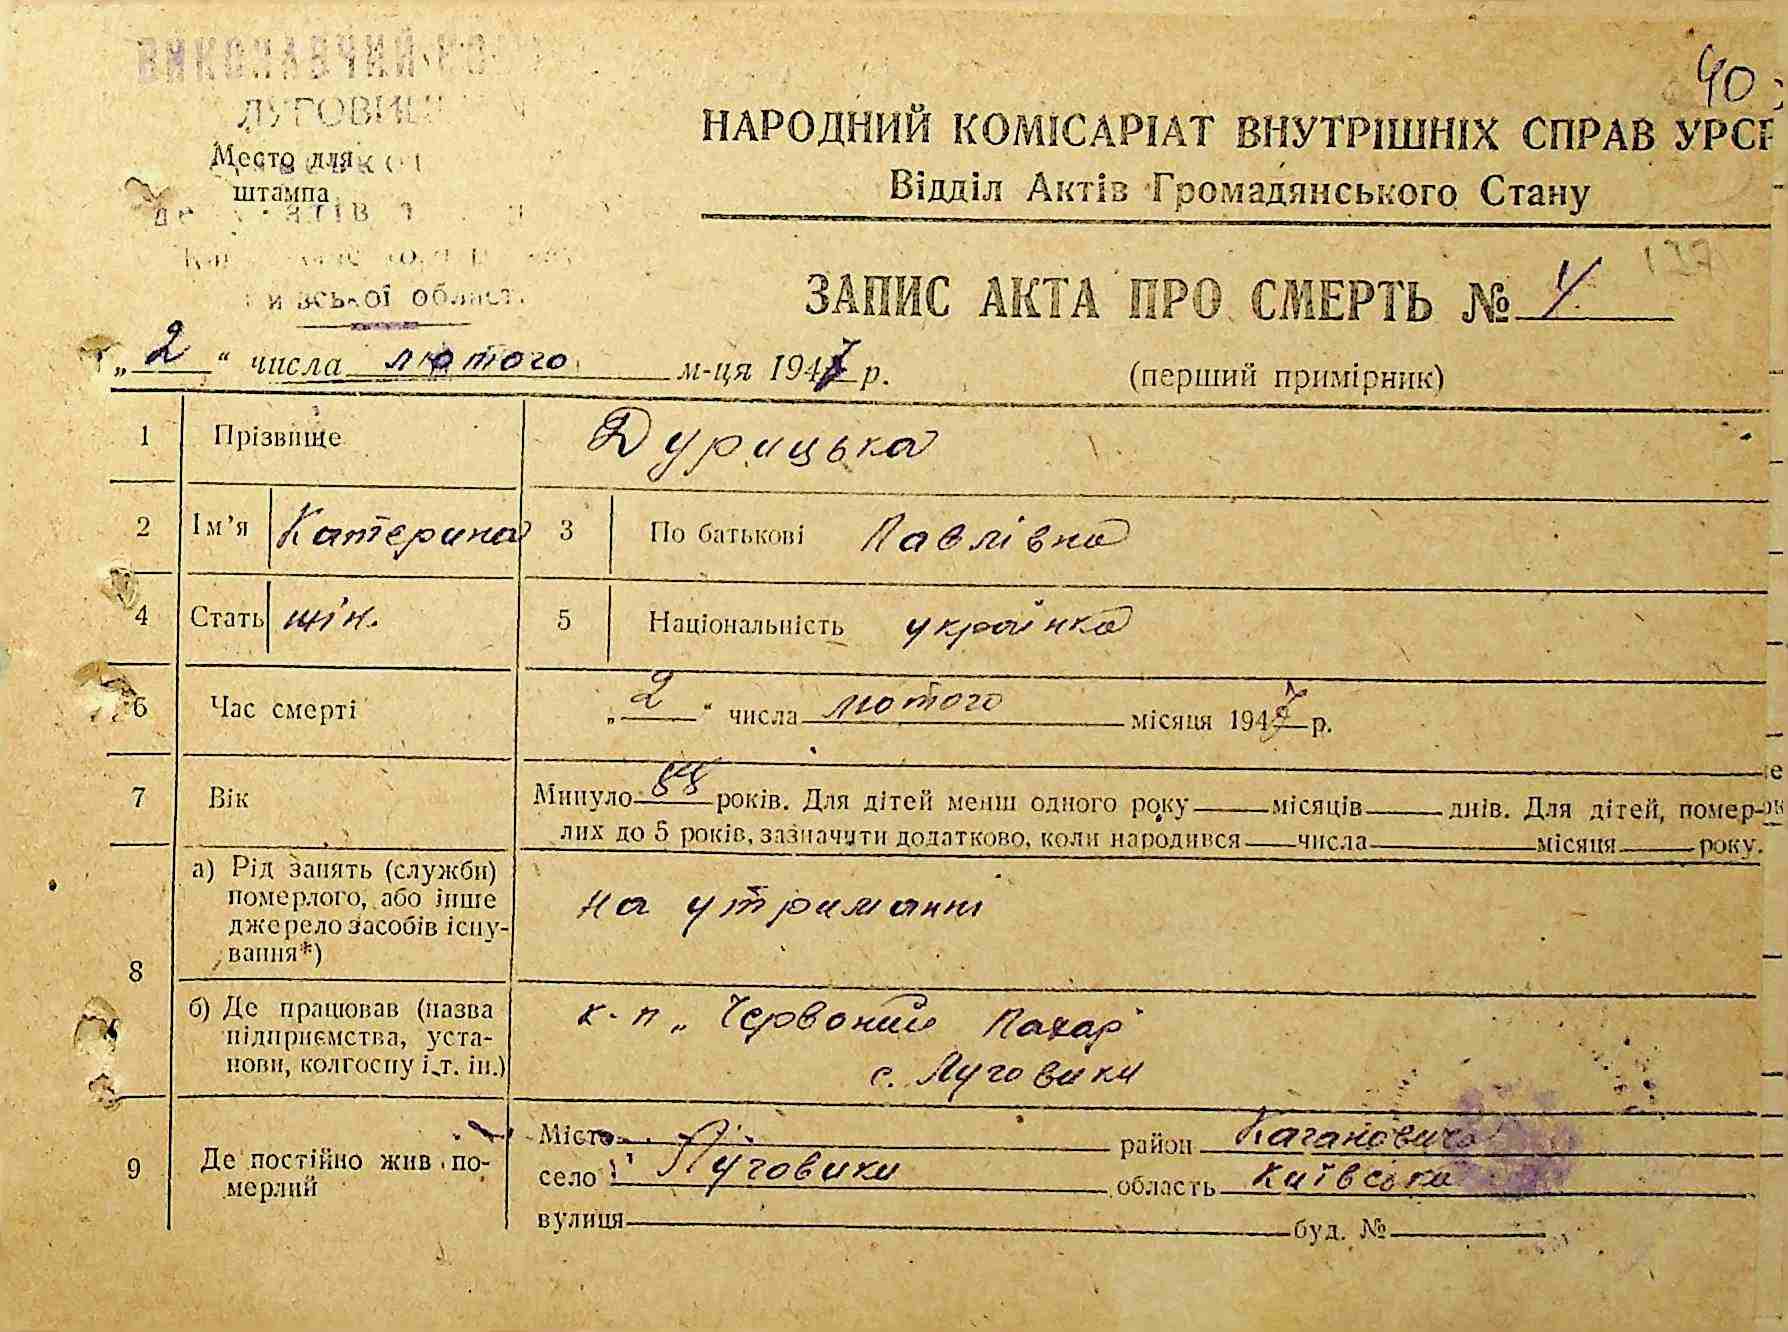 40
ВИКОНАВЧИЙ
Место для
штампа
НАРОДНИЙ КОМІСАРІАТ ВНУТРІШНІХ СПРАВ УРСР
Відділ Актів Громадянського Стану
ЗАПИС АКТА ПРО СМЕРТЬ № 4
області
„2“ числа лютого м-ця 1947 р.
(перший примірник)
1 Прізвище Дурицька
2 Ім’я Катерина 3 По батькові Павлівна
4 Стать жін. 5 Національність українка
6 Час смерті „2“ числа лютого місяця 1947 р.
7 Вік Минуло років. Для дітей менш одного року місяців днів. Для дітей, помер-
лих до 5 років, зазначити додатково, коли народився числа місяця року.
8 а) Рід занять (служби)
померлого, або інше
джерело засобів існу-
вання*)
на утриманні
б) Де працював (назва
підприємства, уста-
нови, колгоспу і т. ін.)
к-п „Червоний Пахар“
с. Луговики
9 Де постійно жив по-
мерлий
Місто район Кагановича
село Луговики область Київська
вулиця буд. №